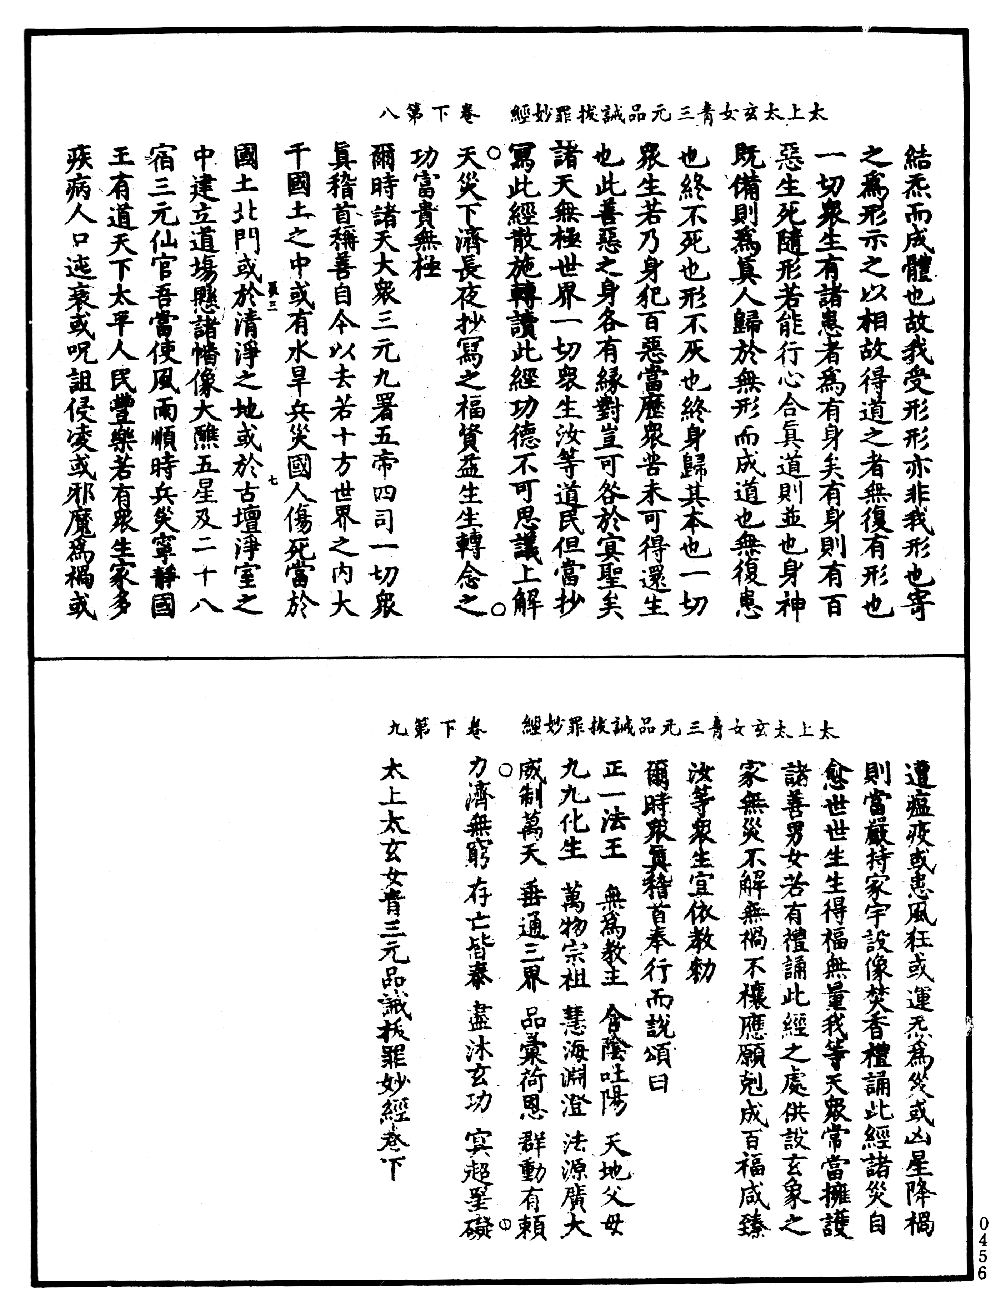 太上太玄女青三元品誡拔罪妙經　卷下第八
結炁而成體也故我受形形亦非我形也寄
之爲形示之以相故得道之者無復有形也
一切衆生有諸患者爲有身矣有身則有百
惡生死隨形若能行心合眞道則並也身神
既備則爲眞人歸於無形而成道也無復患
也終不死也形不灰也終身歸其本也一切
衆生若乃身犯百惡當歷衆苦未可得還生
也此善惡之身各有緣對豈可咎於冥聖矣
諸天無極世界一切衆生汝等道民但當抄
寫此經散施轉讀此經功德不可思議上解
天災下濟長夜抄寫之福資益生生轉念之
功富貴無極
爾時諸天大衆三元九署五帝四司一切衆
眞稽首稱善自今以去若十方世界之內大
千國土之中或有水旱兵災國人傷死當於
張三　七
國土北門或於清淨之地或於古壇淨室之
中建立道場懸諸幡像大醮五星及二十八
宿三元仙官吾當使風雨順時兵災寧靜國
王有道天下太平人民豐樂若有衆生家多
疾病人口迍衰或呪詛侵凌或邪魔爲禍或
太上太玄女青三元品誡拔罪妙經　卷下第九
遭瘟疫或患風狂或運炁爲災或凶星降禍
則當嚴持家宇設像焚香禮誦此經諸災自
愈世世生生得福無量我等天衆常當擁護
諸善男女若有禮誦此經之處供設玄象之
家無災不解無禍不禳應願剋成百福咸臻
汝等衆生宜依教勑
爾時衆眞稽首奉行而說頌曰
正一法王　無爲教主　含陰吐陽　天地父母
九九化生　萬物宗祖　慧海淵澄　法源廣大
威制萬天　垂通三界　品彙荷恩　群動有賴
力濟無窮　存亡皆泰　盡沐玄功　冥超罣礙
太上太玄女青三元品誡拔罪妙經卷下
0456